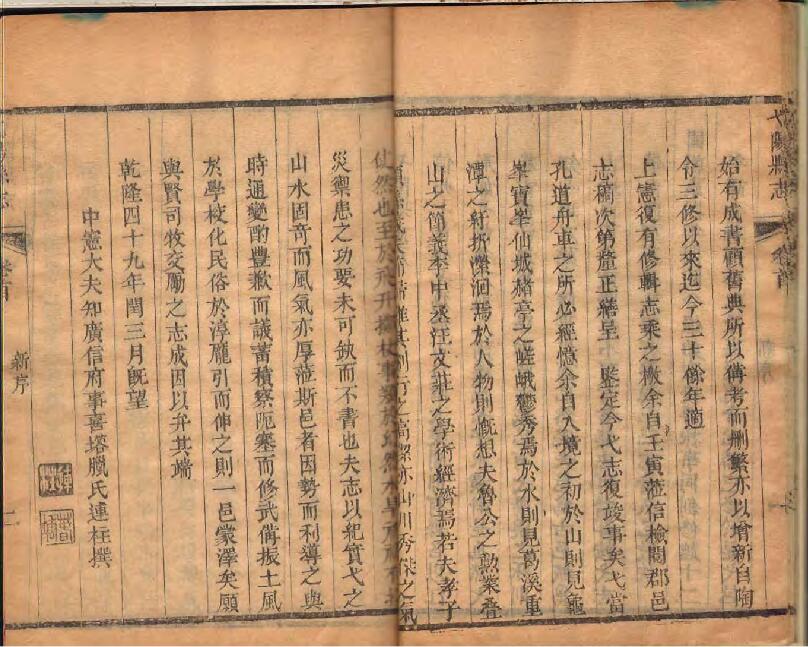 弋陽縣志 卷首
始有成書顧舊典所以傳考而刪繁亦以增新自陶
令三修以來迄今三十餘年適
上憲復有修輯志乘之檄余自壬寅蒞信檢閱郡邑
志稿次第釐正繕呈 鑒定今弋志復竣事矣弋當
孔道舟車之所必經憶余自入境之初於山則見龜
峯寶峯仙城赭亭之嵯峨鬱秀焉於水則見葛溪重
潭之紆折瀠洄焉於人物則慨想夫魯公之勳業疊
山之節義李中丞汪文莊之學術經濟焉若夫孝子
之高潔亦山川秀傑之氣
使然也至於
災禦患之功要未可缺而不書也夫志以紀實弋之
山水固奇而風氣亦厚蒞斯邑者因勢而利導之與
時通變酌豐歉而議蓄積察阨塞而修武備振士風
於學校化民俗於淳龐引而伸之則一邑蒙澤矣願
與賢司牧交勵之志成因以弁其端
乾隆四十九年閏三月既望
中憲大夫知廣信府事喜塔臘氏連柱撰
新序